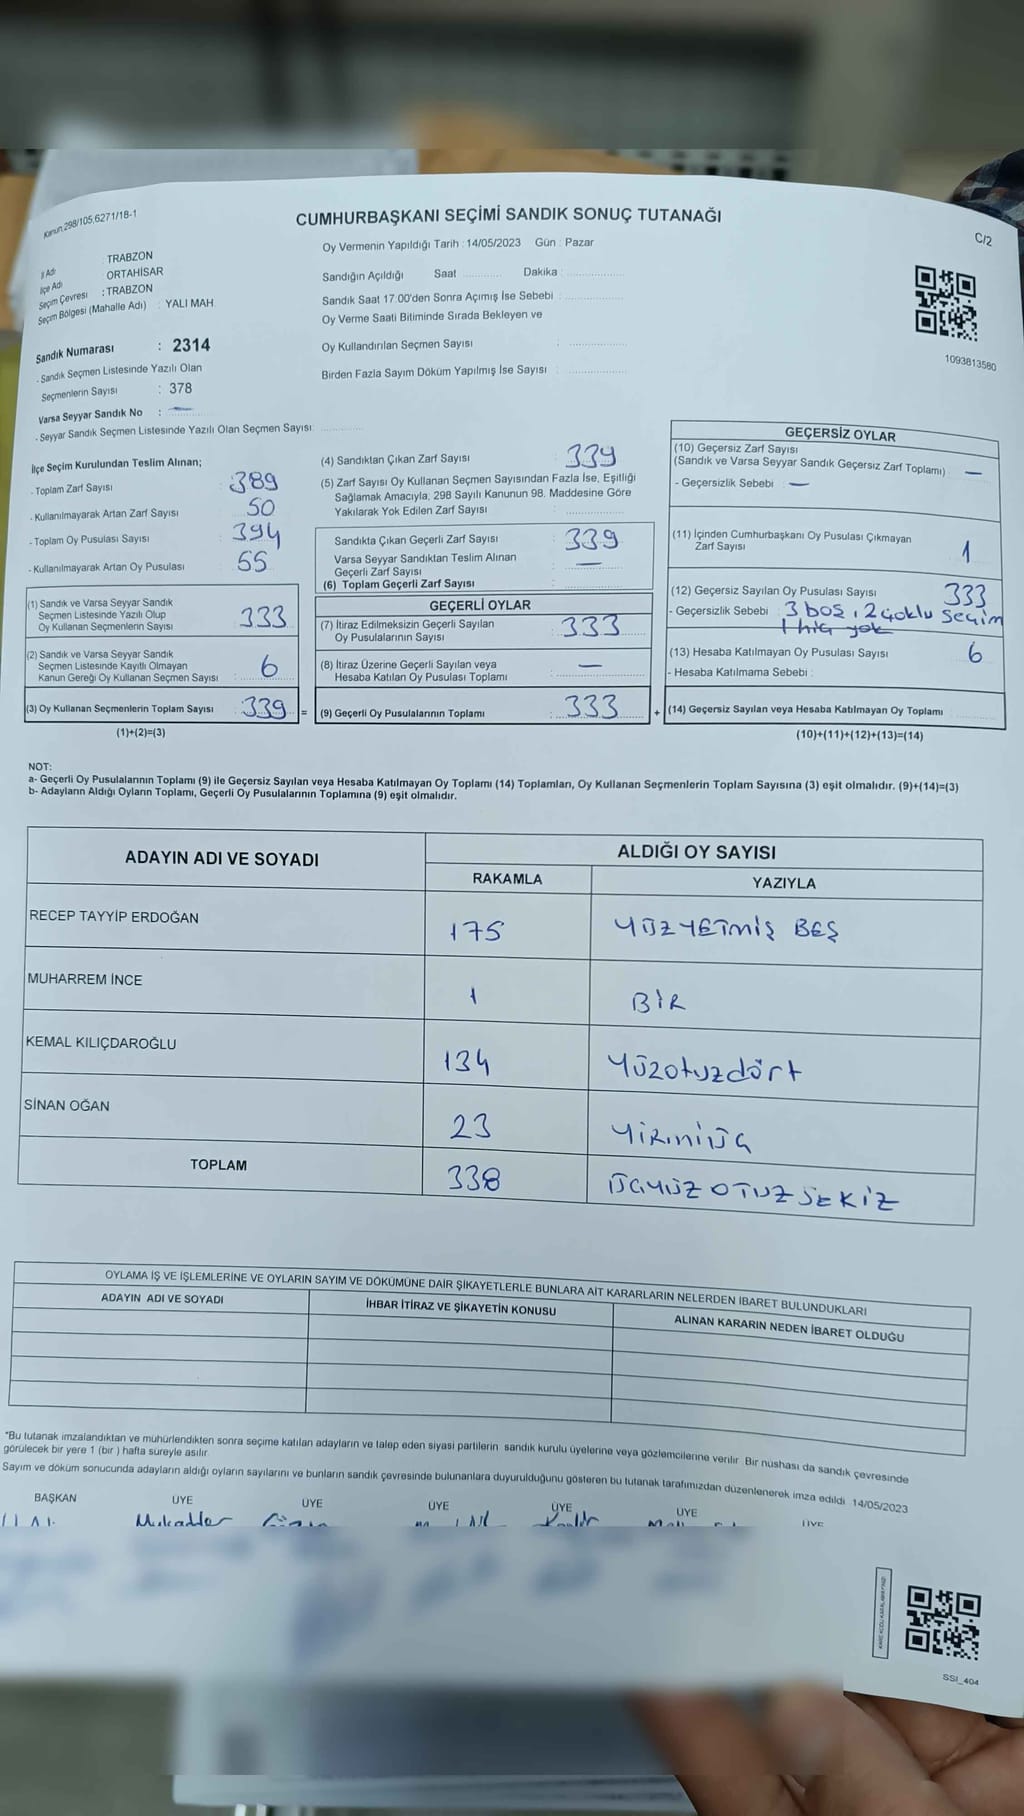 Kanun 298/105,6271/18-1
CUMHURBAŞKANI SEÇİMİ SANDIK SONUÇ TUTANAĞI
C/2
İl Adı : TRABZON
İlçe Adı ORTAHİSAR
Seçim Çevresi : TRABZON
Seçim Bölgesi (Mahalle Adı) : YALI MAH.
Sandık Numarası : 2314
- Sandık Seçmen Listesinde Yazılı Olan
Seçmenlerin Sayısı : 378
Varsa Seyyar Sandık No : —
- Seyyar Sandık Seçmen Listesinde Yazılı Olan Seçmen Sayısı: ............
Oy Vermenin Yapıldığı Tarih : 14/05/2023 Gün : Pazar
Sandığın Açıldığı Saat ............ Dakika : ............
Sandık Saat 17.00'den Sonra Açımış İse Sebebi : ............
Oy Verme Saati Bitiminde Sırada Bekleyen ve
Oy Kullandırılan Seçmen Sayısı : ............
Birden Fazla Sayım Döküm Yapılmış İse Sayısı : ............
1093813580
İlçe Seçim Kurulundan Teslim Alınan;
- Toplam Zarf Sayısı : 389
- Kullanılmayarak Artan Zarf Sayısı : 50
- Toplam Oy Pusulası Sayısı : 394
- Kullanılmayarak Artan Oy Pusulası : 55
(1) Sandık ve Varsa Seyyar Sandık
Seçmen Listesinde Yazılı Olup
Oy Kullanan Seçmenlerin Sayısı : 333
(2) Sandık ve Varsa Seyyar Sandık
Seçmen Listesinde Kayıtlı Olmayan
Kanun Gereği Oy Kullanan Seçmen Sayısı : 6
(3) Oy Kullanan Seçmenlerin Toplam Sayısı : 339 =
(1)+(2)=(3)
(4) Sandıktan Çıkan Zarf Sayısı : 339
(5) Zarf Sayısı Oy Kullanan Seçmen Sayısından Fazla İse, Eşitliği
Sağlamak Amacıyla, 298 Sayılı Kanunun 98. Maddesine Göre
Yakılarak Yok Edilen Zarf Sayısı : ............
Sandıkta Çıkan Geçerli Zarf Sayısı : 339
Varsa Seyyar Sandıktan Teslim Alınan
Geçerli Zarf Sayısı : —
(6) Toplam Geçerli Zarf Sayısı : ............
GEÇERLİ OYLAR
(7) İtiraz Edilmeksizin Geçerli Sayılan
Oy Pusulalarının Sayısı : 333
(8) İtiraz Üzerine Geçerli Sayılan veya
Hesaba Katılan Oy Pusulası Toplamı : —
(9) Geçerli Oy Pusulalarının Toplamı : 333 +
GEÇERSİZ OYLAR
(10) Geçersiz Zarf Sayısı
(Sandık ve Varsa Seyyar Sandık Geçersiz Zarf Toplamı) : —
- Geçersizlik Sebebi : —
(11) İçinden Cumhurbaşkanı Oy Pusulası Çıkmayan
Zarf Sayısı 1
(12) Geçersiz Sayılan Oy Pusulası Sayısı 333
- Geçersizlik Sebebi : 3 boş, 2 çoklu seçim
1 hiç yok
(13) Hesaba Katılmayan Oy Pusulası Sayısı 6
- Hesaba Katılmama Sebebi :
(14) Geçersiz Sayılan veya Hesaba Katılmayan Oy Toplamı ............
(10)+(11)+(12)+(13)=(14)
NOT:
a- Geçerli Oy Pusulalarının Toplamı (9) ile Geçersiz Sayılan veya Hesaba Katılmayan Oy Toplamı (14) Toplamları, Oy Kullanan Seçmenlerin Toplam Sayısına (3) eşit olmalıdır. (9)+(14)=(3)
b- Adayların Aldığı Oyların Toplamı, Geçerli Oy Pusulalarının Toplamına (9) eşit olmalıdır.
ADAYIN ADI VE SOYADI
ALDIĞI OY SAYISI
RAKAMLA YAZIYLA
RECEP TAYYİP ERDOĞAN 175 YÜZYETMİŞ BEŞ
MUHARREM İNCE 1 BİR
KEMAL KILIÇDAROĞLU 134 Yüzotuzdört
SİNAN OĞAN 23 YİRMİÜÇ
TOPLAM 338 ÜÇYÜZ OTUZ SEKİZ
OYLAMA İŞ VE İŞLEMLERİNE VE OYLARIN SAYIM VE DÖKÜMÜNE DAİR ŞİKAYETLERLE BUNLARA AİT KARARLARIN NELERDEN İBARET BULUNDUKLARI
ADAYIN ADI VE SOYADI İHBAR İTİRAZ VE ŞİKAYETİN KONUSU ALINAN KARARIN NEDEN İBARET OLDUĞU
*Bu tutanak imzalandıktan ve mühürlendikten sonra seçime katılan adayların ve talep eden siyasi partilerin sandık kurulu üyelerine veya gözlemcilerine verilir. Bir nüshası da sandık çevresinde
görülecek bir yere 1 (bir ) hafta süreyle asılır.
Sayım ve döküm sonucunda adayların aldığı oyların sayılarını ve bunların sandık çevresinde bulunanlara duyurulduğunu gösteren bu tutanak tarafımızdan düzenlenerek imza edildi. 14/05/2023
BAŞKAN ÜYE ÜYE ÜYE ÜYE ÜYE ÜYE
Mukadder
SSI_404